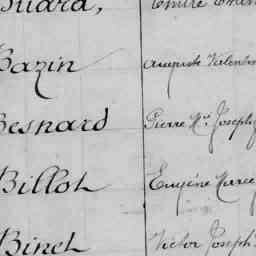 Bazin Auguste Valentin
Besnard Pierre Mie Joseph
Billot Eugène Marce
Binet Victor Joseph